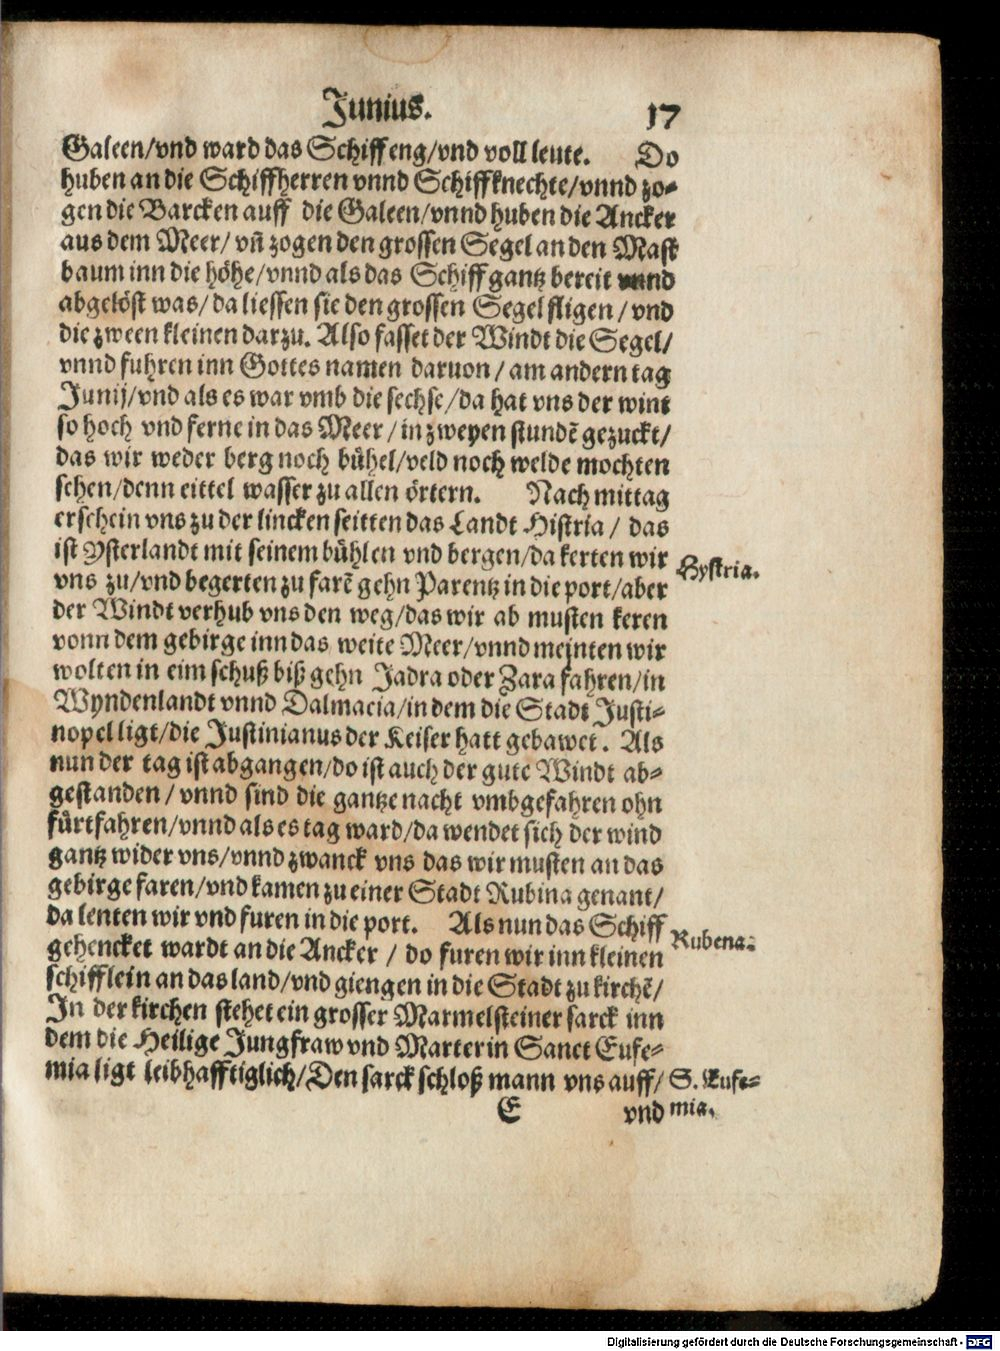 Junius. 17
Galeen/vnd ward das Schiff eng/vnd voll leute. Do
huben an die Schiffherren vnnd Schiffknechte/vnnd zo-
gen die Barcken auff die Galeen/vnnd huben die Ancker
aus dem Meer/ vñ zogen den grossen Segel an den Mast
baum inn die höhe/vnnd als das Schiff gantz bereit vnnd
abgelöst was/da liessen sie den grossen Segel fligen/vnd
die zween kleinen darzu. Also fasset der Windt die Segel/
vnnd fuhren inn Gottes namen daruon/am andern tag
Junij/vnd als es war vmb die sechse/da hat vns der wint
so hoch vnd ferne in das Meer/in zweyen stundē gezuckt/
das wir weder berg noch bühel/veld noch welde mochten
sehen/denn eittel wasser zu allen örtern. Nach mittag
erschein vns zu der lincken seitten das Landt Histria/ das
ist Ysterlandt mit seinem bühlen vnd bergen/da kerten wir
Hystria.
vns zu/vnd begerten zu farē gehn Parentz in die port/aber
der Windt verhub vns den weg/das wir ab musten keren
vonn dem gebirge inn das weite Meer/vnnd meinten wir
wolten in eim schuß biß gehn Jadra oder Zara fahren/in
Wyndenlandt vnnd Dalmacia/in dem die Stadt Justi-
nopel ligt/die Justinianus der Keiser hatt gebawet. Als
nun der tag ist abgangen/do ist auch der gute Windt ab-
gestanden/vnnd sind die gantze nacht vmbgefahren ohn
fürtfahren/vnnd als es tag ward/da wendet sich der wind
gantz wider vns/vnnd zwanck vns das wir musten an das
gebirge faren/vnd kamen zu einer Stadt Rubina genant/
da lenten wir vnd furen in die port. Als nun das Schiff
Rubena.
gehencket wardt an die Ancker/ do furen wir inn kleinen
schifflein an das land/vnd giengen in die Stadt zu kirchē/
In der kirchen stehet ein grosser Marmelsteiner sarck inn
dem die Heilige Jungfraw vnd Marterin Sanct Eufe-
mia ligt leibhafftiglich/Den sarck schloß mann vns auff/
S. Eufe-
mia.
E vnd
Digitalisierung gefördert durch die Deutsche Forschungsgemeinschaft - DFG